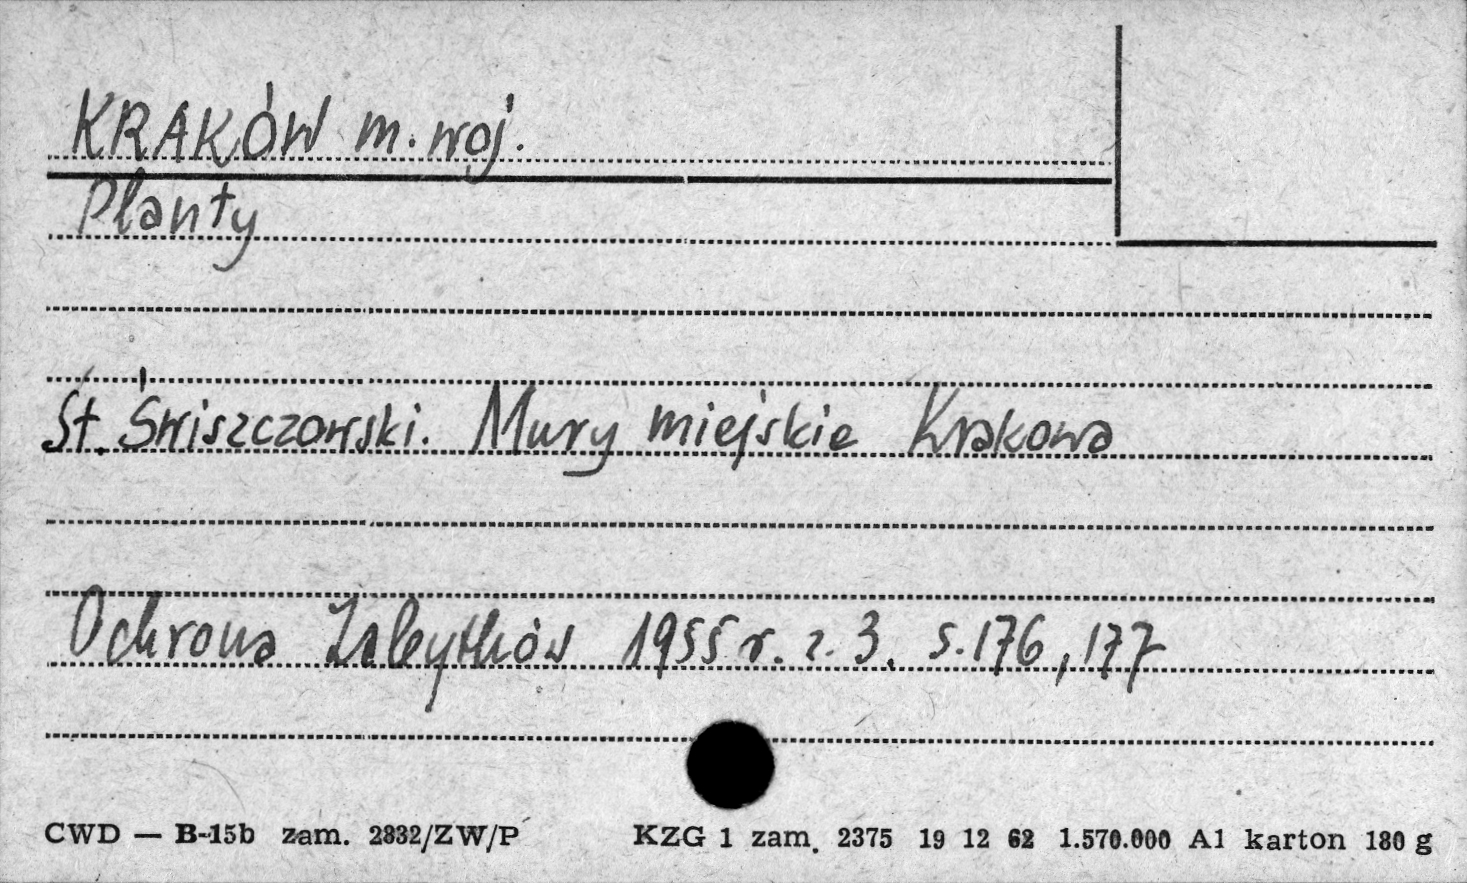 KRAKÓW m. woj.
Planty
St. Świszczowski. Mury miejskie Krakowa
Ochrona Zabytków 1955 r. z. 3. s. 176, 177
CWD — B-15b zam. 2832/ZW/P KZG 1 zam. 2375 19 12 62 1.570.000 A1 karton 180 g